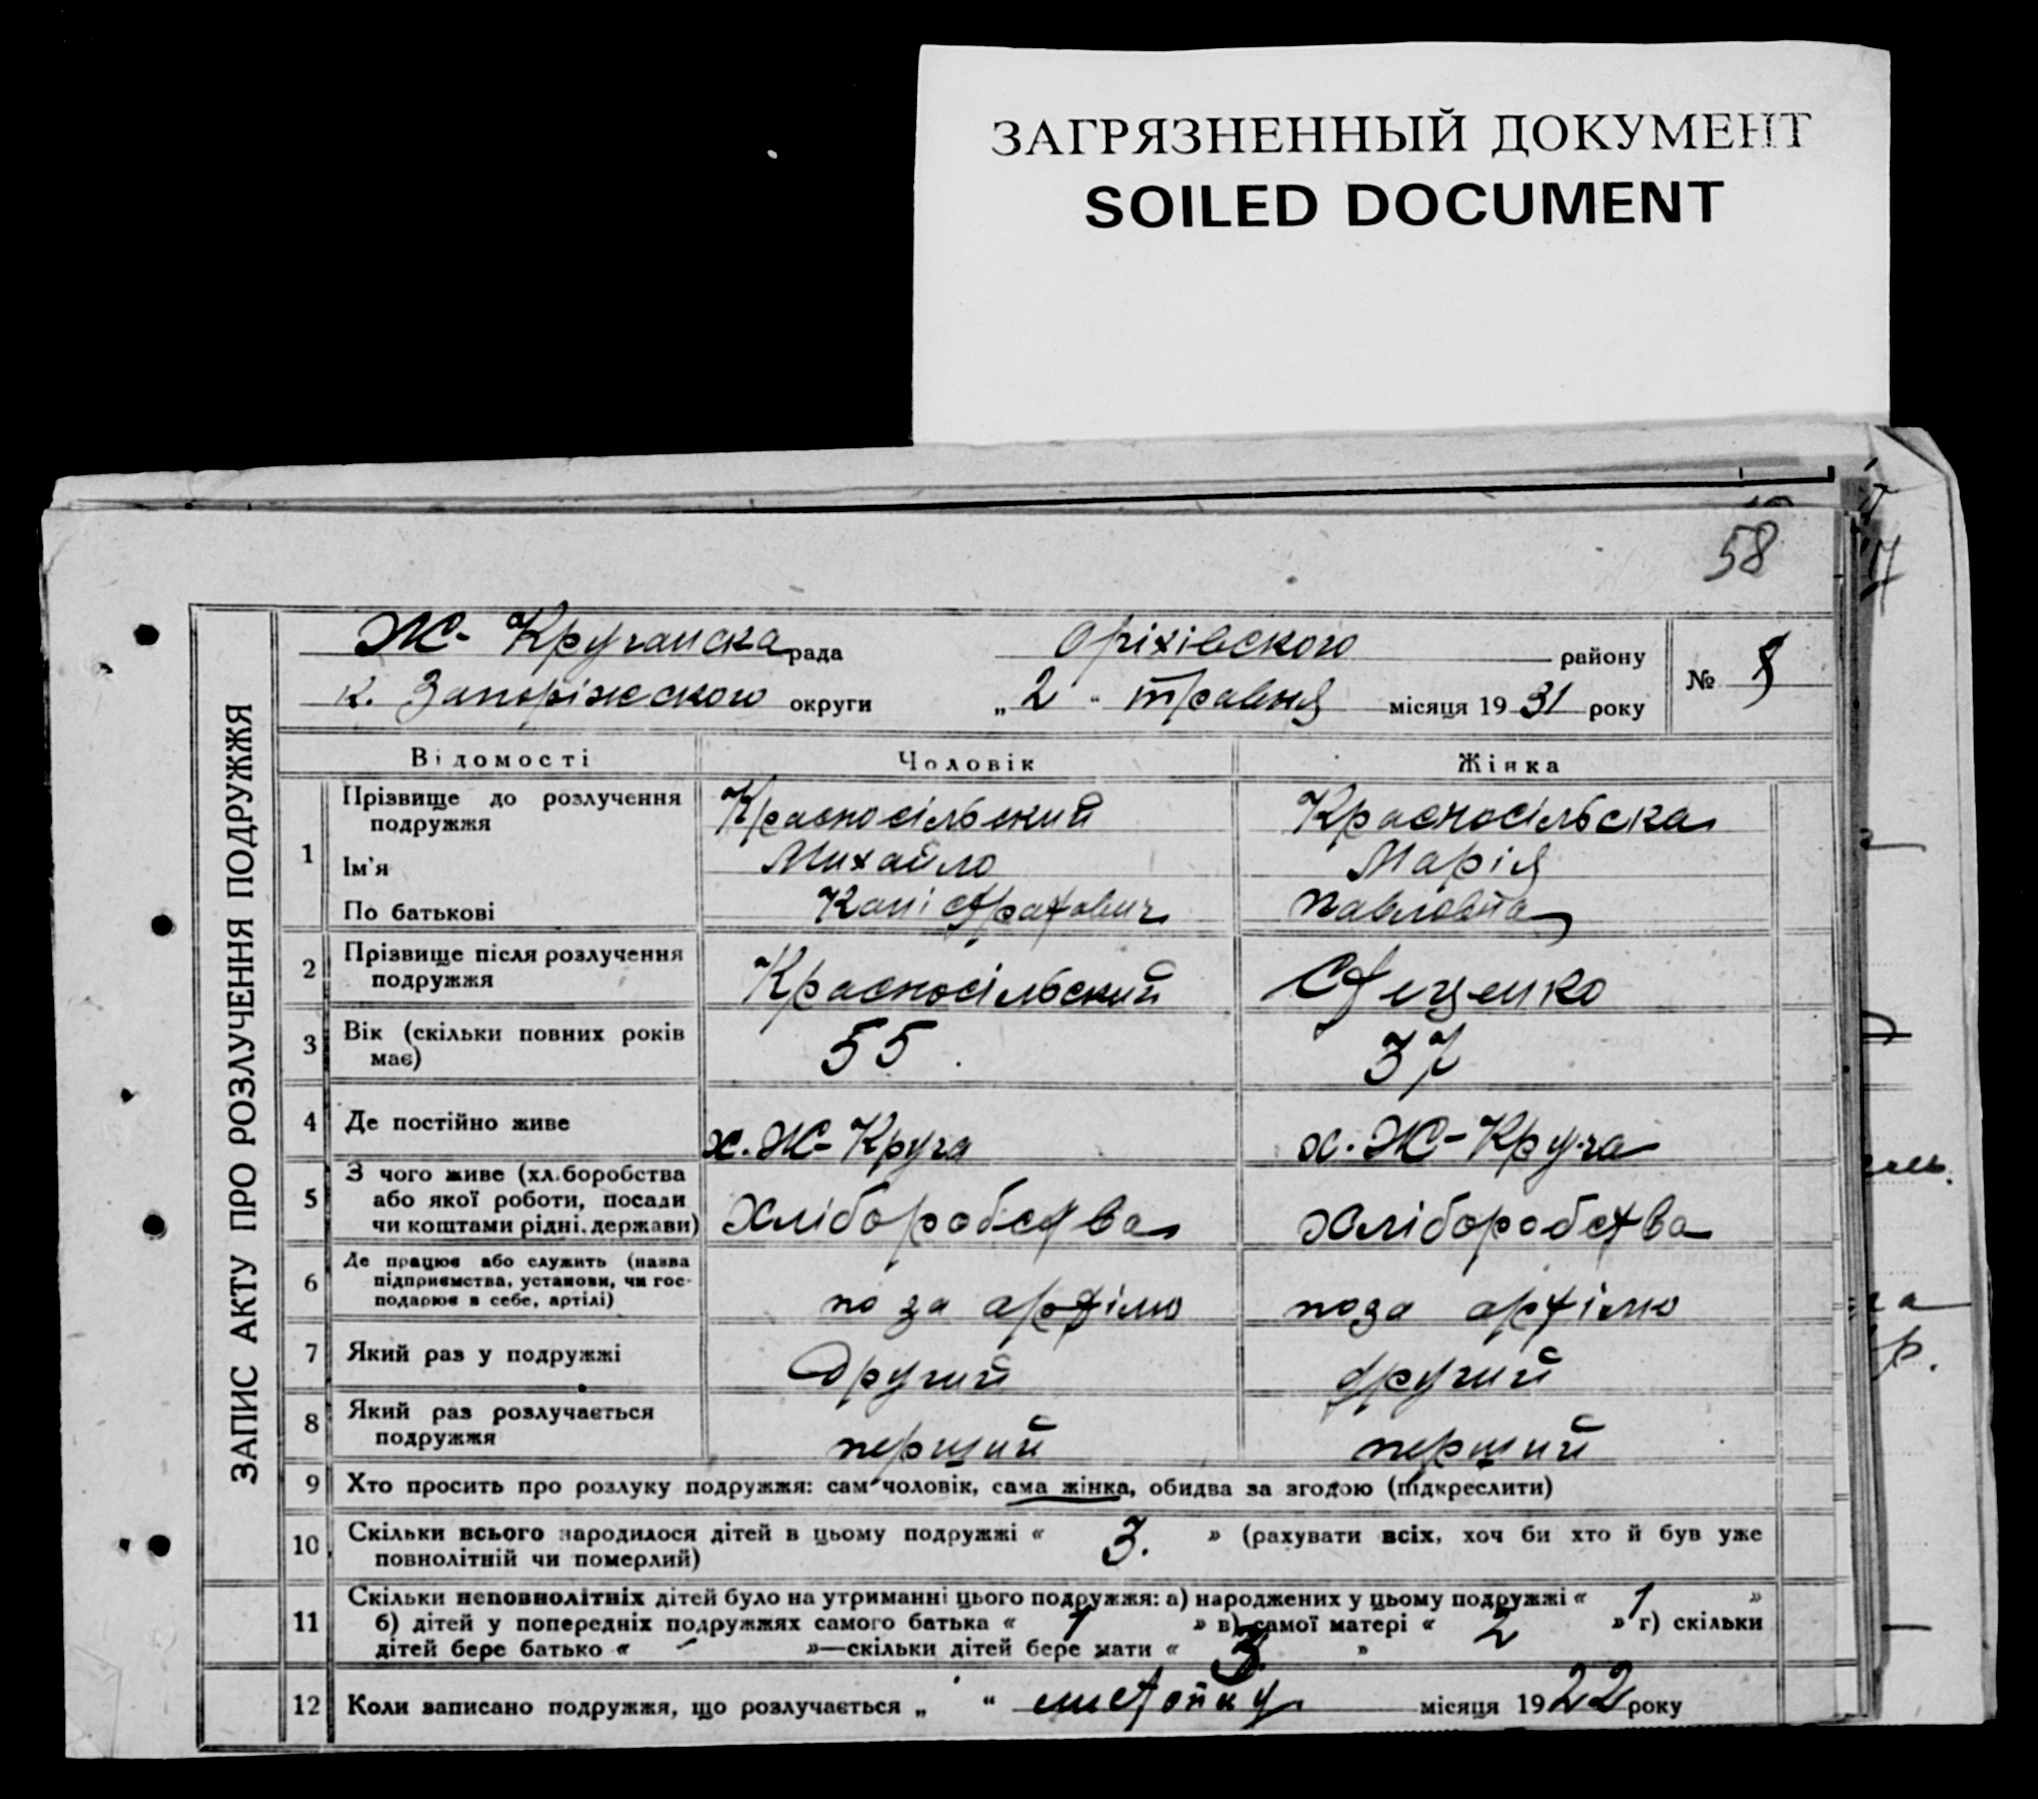 ЗАГРЯЗНЕННЫЙ ДОКУМЕНТ
SOILED DOCUMENT
58
ЗАПИС АКТУ ПРО РОЗЛУЧЕННЯ ПОДРУЖЖЯ
Ж- Кручанска рада Оріхівского району
к. Запоріжского округи „ 2 " травня місяця 1931 року № 8
Відомості Чоловік Жінка
1 Прізвище до розлучення подружжя Красносільский Красносільска
Ім'я Михайло Марія
По батькові Павловна
2 Прізвище після розлучення подружжя Красносільский Стеценко
3 Вік (скільки повних років має) 55. 37
4 Де постійно живе х. Ж-Круча х. Ж-Круча
5 З чого живе (хл.боробства або якої роботи, посади чи коштами рідні, держави) Хліборобства Хліборобства
6 Де працює або служить (назва підприємства, установи, чи господарює в себе, артілі) по за артілю поза артілю
7 Який раз у подружжі Другий другий
8 Який раз розлучається подружжя перший перший
9 Хто просить про розлуку подружжя: сам чоловік, сама жінка, обидва за згодою (підкреслити)
10 Скільки всього народилося дітей в цьому подружжі « 3. » (рахувати всіх, хоч би хто й був уже
повнолітній чи померлий)
11 Скільки неповнолітніх дітей було на утриманні цього подружжя: а) народжених у цьому подружжі « 1 »
б) дітей у попередніх подружжях самого батька « 1 » в) самої матері « 2 » г) скільки
дітей бере батько « - »—скільки дітей бере мати « 3 »
12 Коли записано подружжя, що розлучається „ " місяця 1922 року